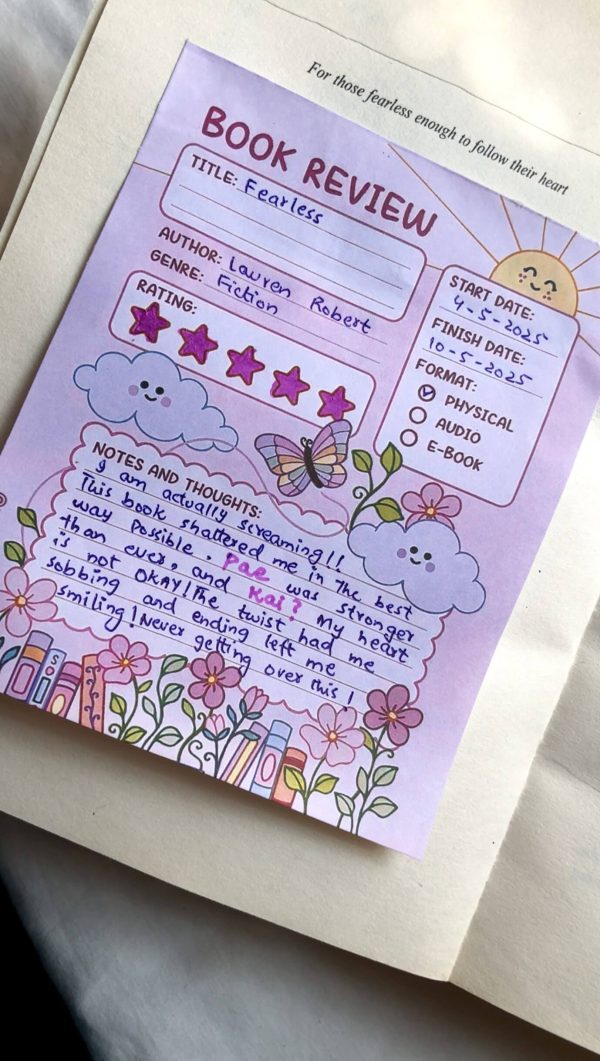 For those fearless enough to follow their heart
BOOK REVIEW
TITLE: Fearless
AUTHOR: Lauren Robert
GENRE: Fiction
RATING:
START DATE:
4-5-2025
FINISH DATE:
10-5-2025
FORMAT:
PHYSICAL
AUDIO
E-BOOK
NOTES AND THOUGHTS:
I am actually screaming!!
This book shattered me in the best
way possible. Pae was stronger
than ever, and Kai? My heart
is not OKAY! The twist had me
sobbing and ending left me
smiling! Never getting over this!